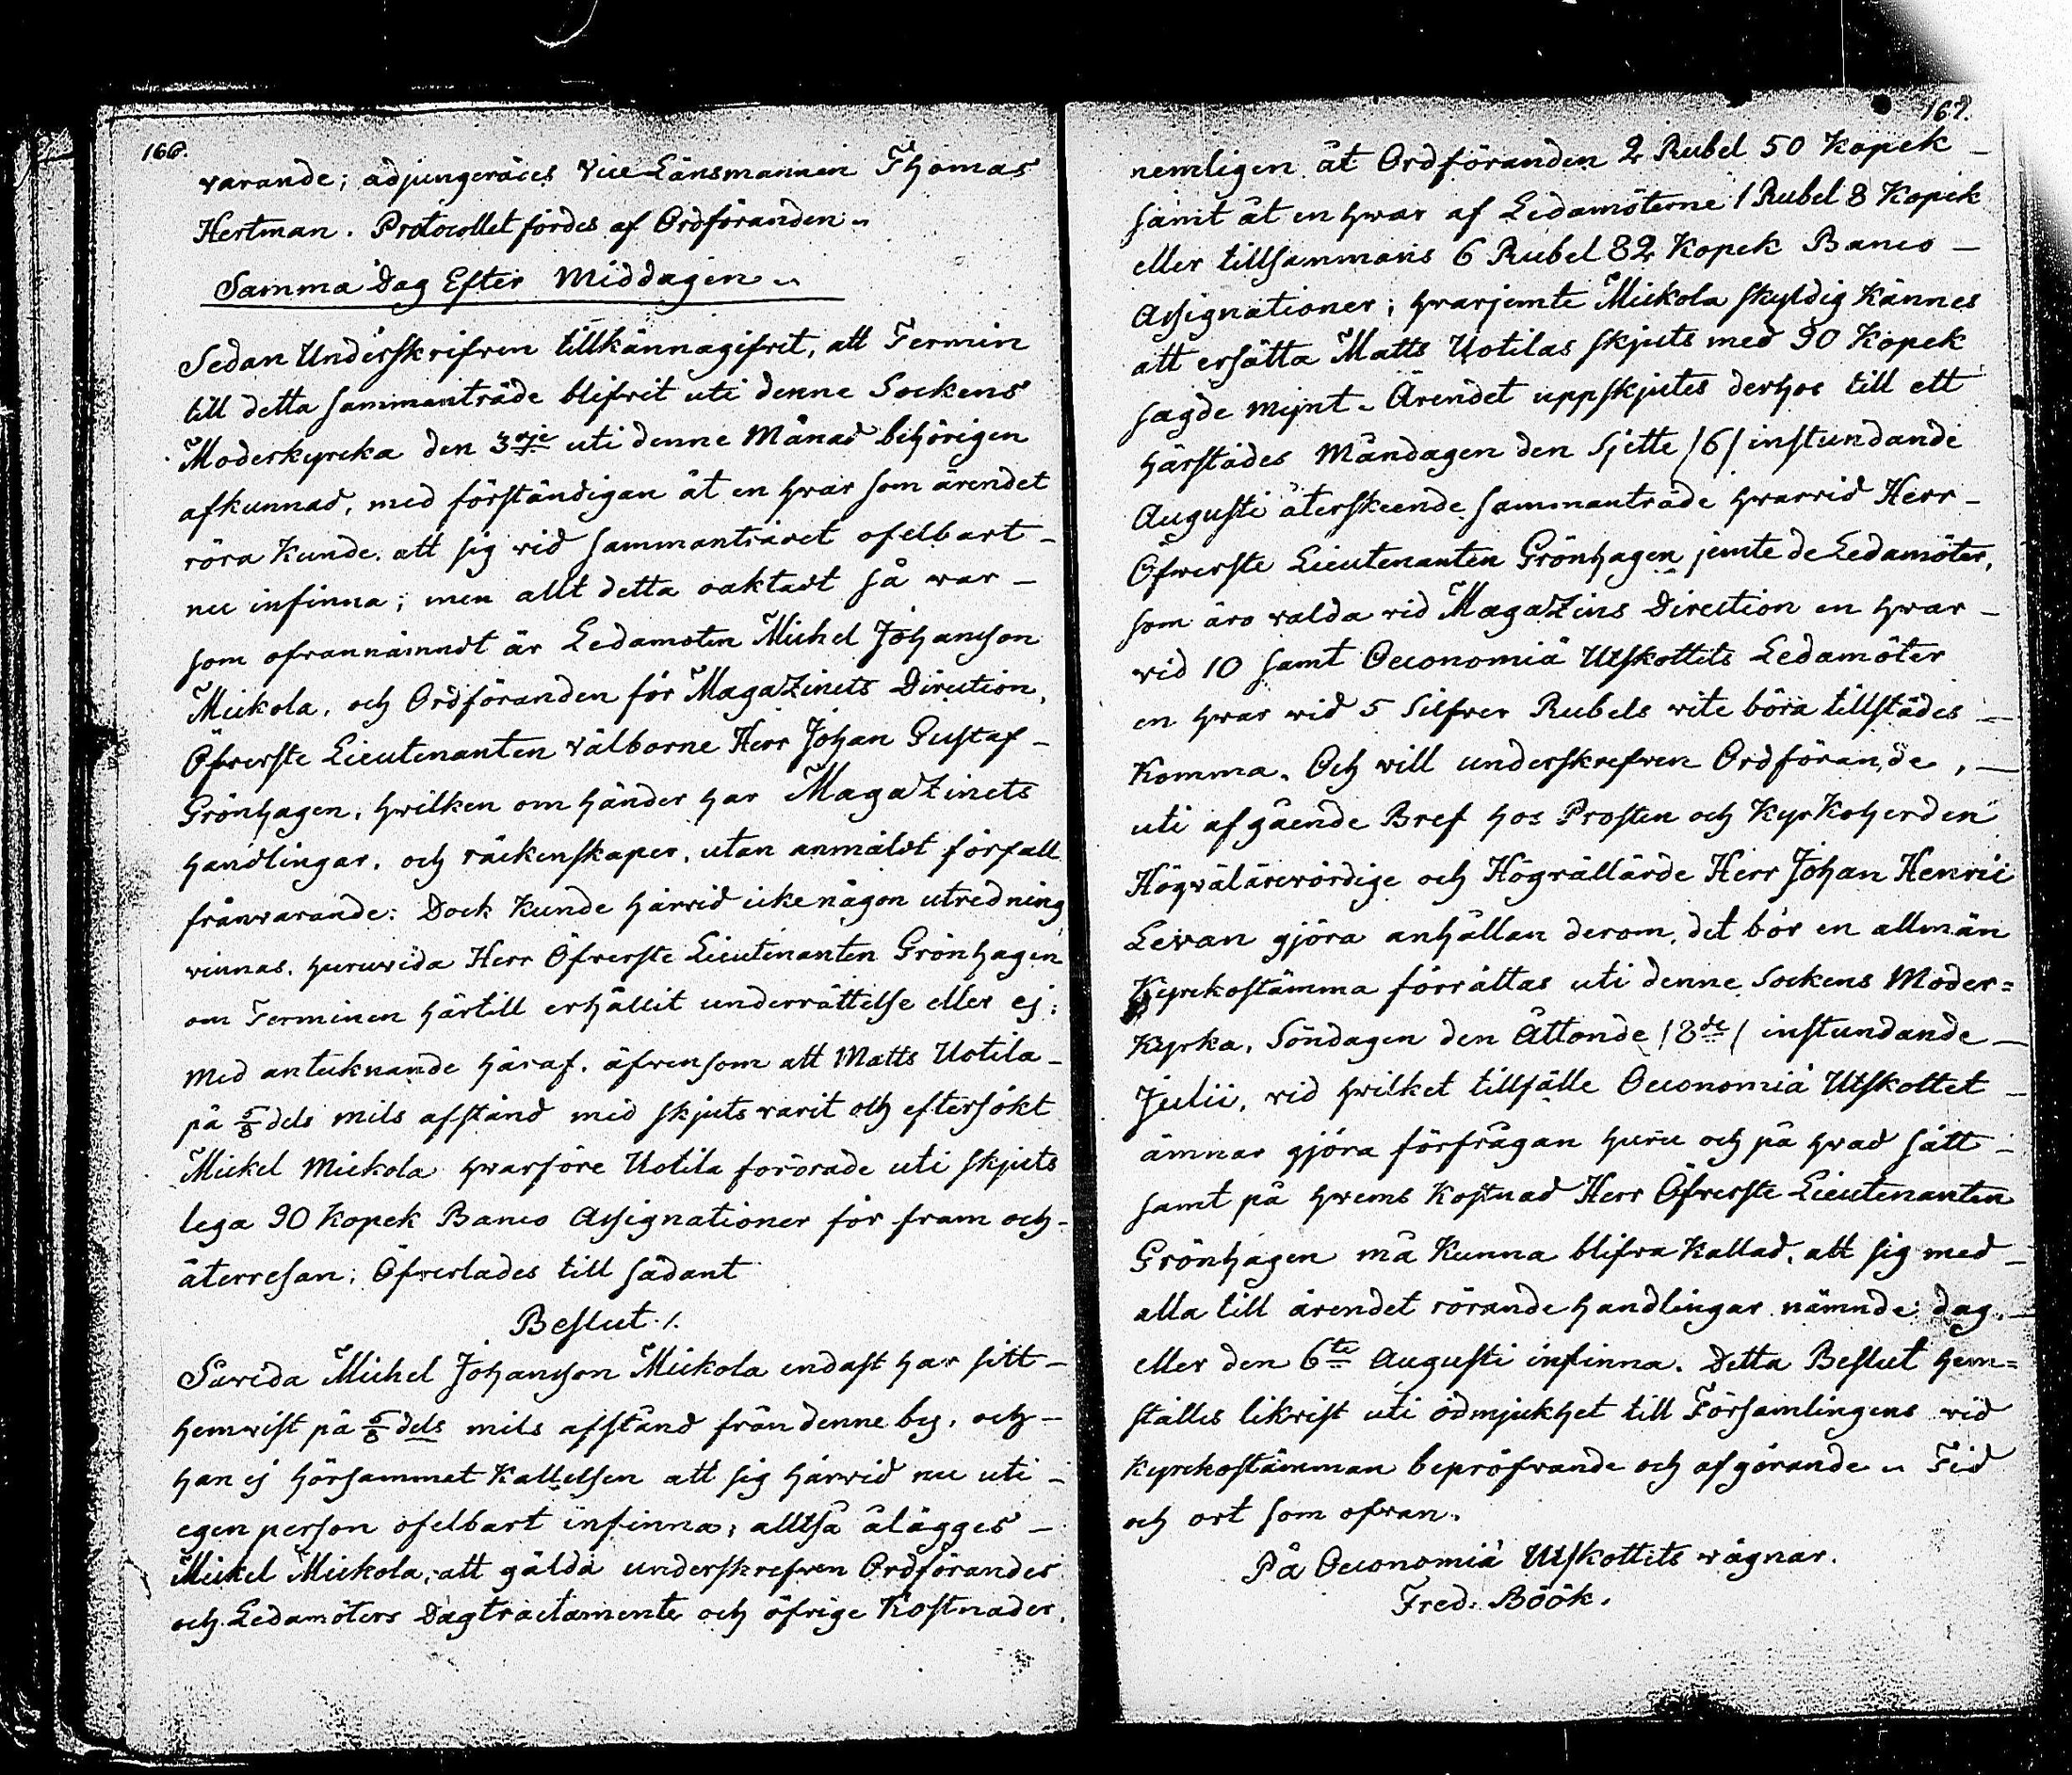 166.
varande; adjungerades Vice Länsmannen Thomas
Hertman. Protocollet fördes af Ordföranden.
Samma Dag Efter Middagen.
Sedan Underskrifven tillkännagifvit, att Termin
till detta sammanträde blifvit uti denne Sockens
Moderkyrcka den 3dje uti denne Månad behörigen
afkunnad, med förständigan åt en hvar som ärendet
röra Kunde, att sig vid sammanträdet ofelbart
nu infinna; men allt detta oaktadt så war
som ofvannämndt är Ledamoten Michel Johansson
Mickola, och Ordföranden för Magazinets Direction,
Öfverste Lieutenanten Välborne Herr Johan Gustaf
Grönhagen, hvilken om händer har Magazinets
handlingar, och räckenskaper, utan anmäldt förfall
frånvarande: Dock Kunde härvid icke någon utredning
vinnas, huruvida Herr Öfverste Lieutenanten Grönhagen
om Terminen härtill erhållit underrättelse eller ej;
Med antecknande häraf, äfvensom att Matts Uotila
på 5/8 dels mils afstånd med skjuts varit och eftersökt
Mickel Mickola hvarföre Uotila fordrade uti skjuts
lega 90 Kopek Banco Assignationer för fram och
återresan; Öfverlades till sådant
Beslut /.
Såvida Michel Johansson Mickola endast har sitt
hemvist på 5/8 dels mils afstånd från denne by, och
han ej hörsammat Kallelsen att sig härvid nu uti
egen person ofelbart infinna; alltså ålägges
Mickel Mickola, att gälda underskrefven Ordförandes
och Ledamöters Dagtractamente och öfrige Kostnader,
167.
nemligen åt Ordföranden 2 Rubel 50 Kopek
samt åt en hvar af Ledamöterne 1 Rubel 8 Kopek
eller tillsammans 6 Rubel 82 Kopek Banco
Assignationer; hvarjemte Mickola skyldig Kännes
att ersätta Matts Uotilas skjuts med 90 Kopek
sagde mynt. Ärendet uppskjutes derhos till ett
härstädes Måndagen den Sjette /6/ instundande
Augusti återskeende sammanträde hvarvid Herr
Öfwerste Lieutenanten Grönhagen jemte de Ledamöter,
som äro valda vid Magazins Direction en hvar
vid 10 samt Oeconomiä Utskottets Ledamöter
en hvar vid 5 Silfver Rubels vite böra tillstädes
Komma. Och will underskrefven Ordförande,
uti afgående Bref hos Prosten och Kyrkoherden
Högvälärevördige och Högvällärde Herr Johan Henric
Levan gjöra anhållan derom, det bör en allmän
Kyrckostämma förrättas uti denne Sockens Moder=
Kyrka, Söndagen den Åttonde /8de/ instundande
Julii, vid hvilket tillfälle Oeconomiä Utskottet
ämnar gjöra förfrågan huru och på hvad sätt
samt på hvems Kostnad Herr Öfverste Lieutenanten
Grönhagen må Kunna blifva Kallad, att sig med
alla till ärendet rörande handlingar nämnde dag,
eller den 6te Augusti infinna. Detta Beslut hem=
ställes likvist uti ödmjukhet till Församlingens vid
Kyrckostämman bepröfvande och afgörande. Tid
och ort som ofvan.
På Oeconomiä Utskottets vägnar.
Fred. Böök.